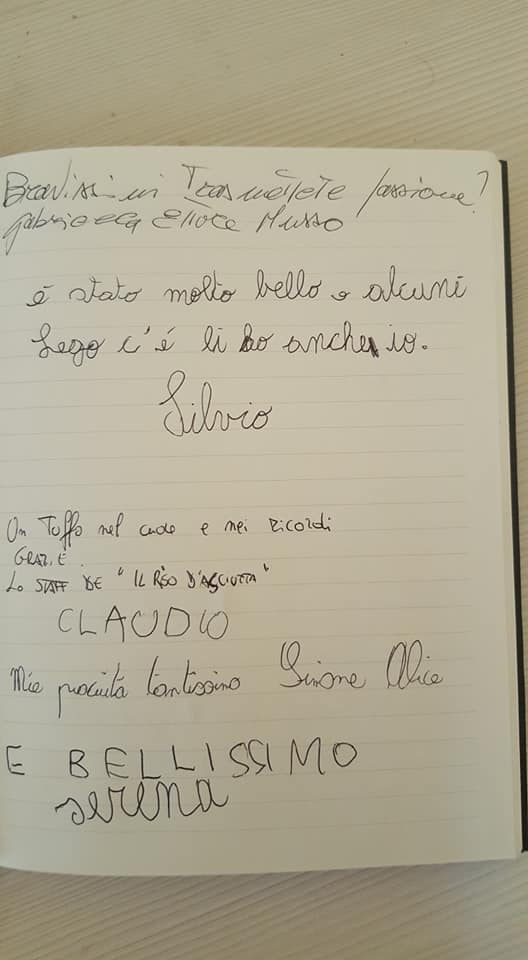 Bravissimi Trasmettete passione!
Gabriella Musso
é stato molto bello e alcuni
Lego c'é li ho anche io.
Silvio
Un Tuffo nel cuore e nei Ricordi
GRAZIE
Lo STAFF DE "IL RISO D'ASCIUTTA"
CLAUDIO
Mie piaciuta tantissimo Simone Alice
E BELLISSIMO
serena